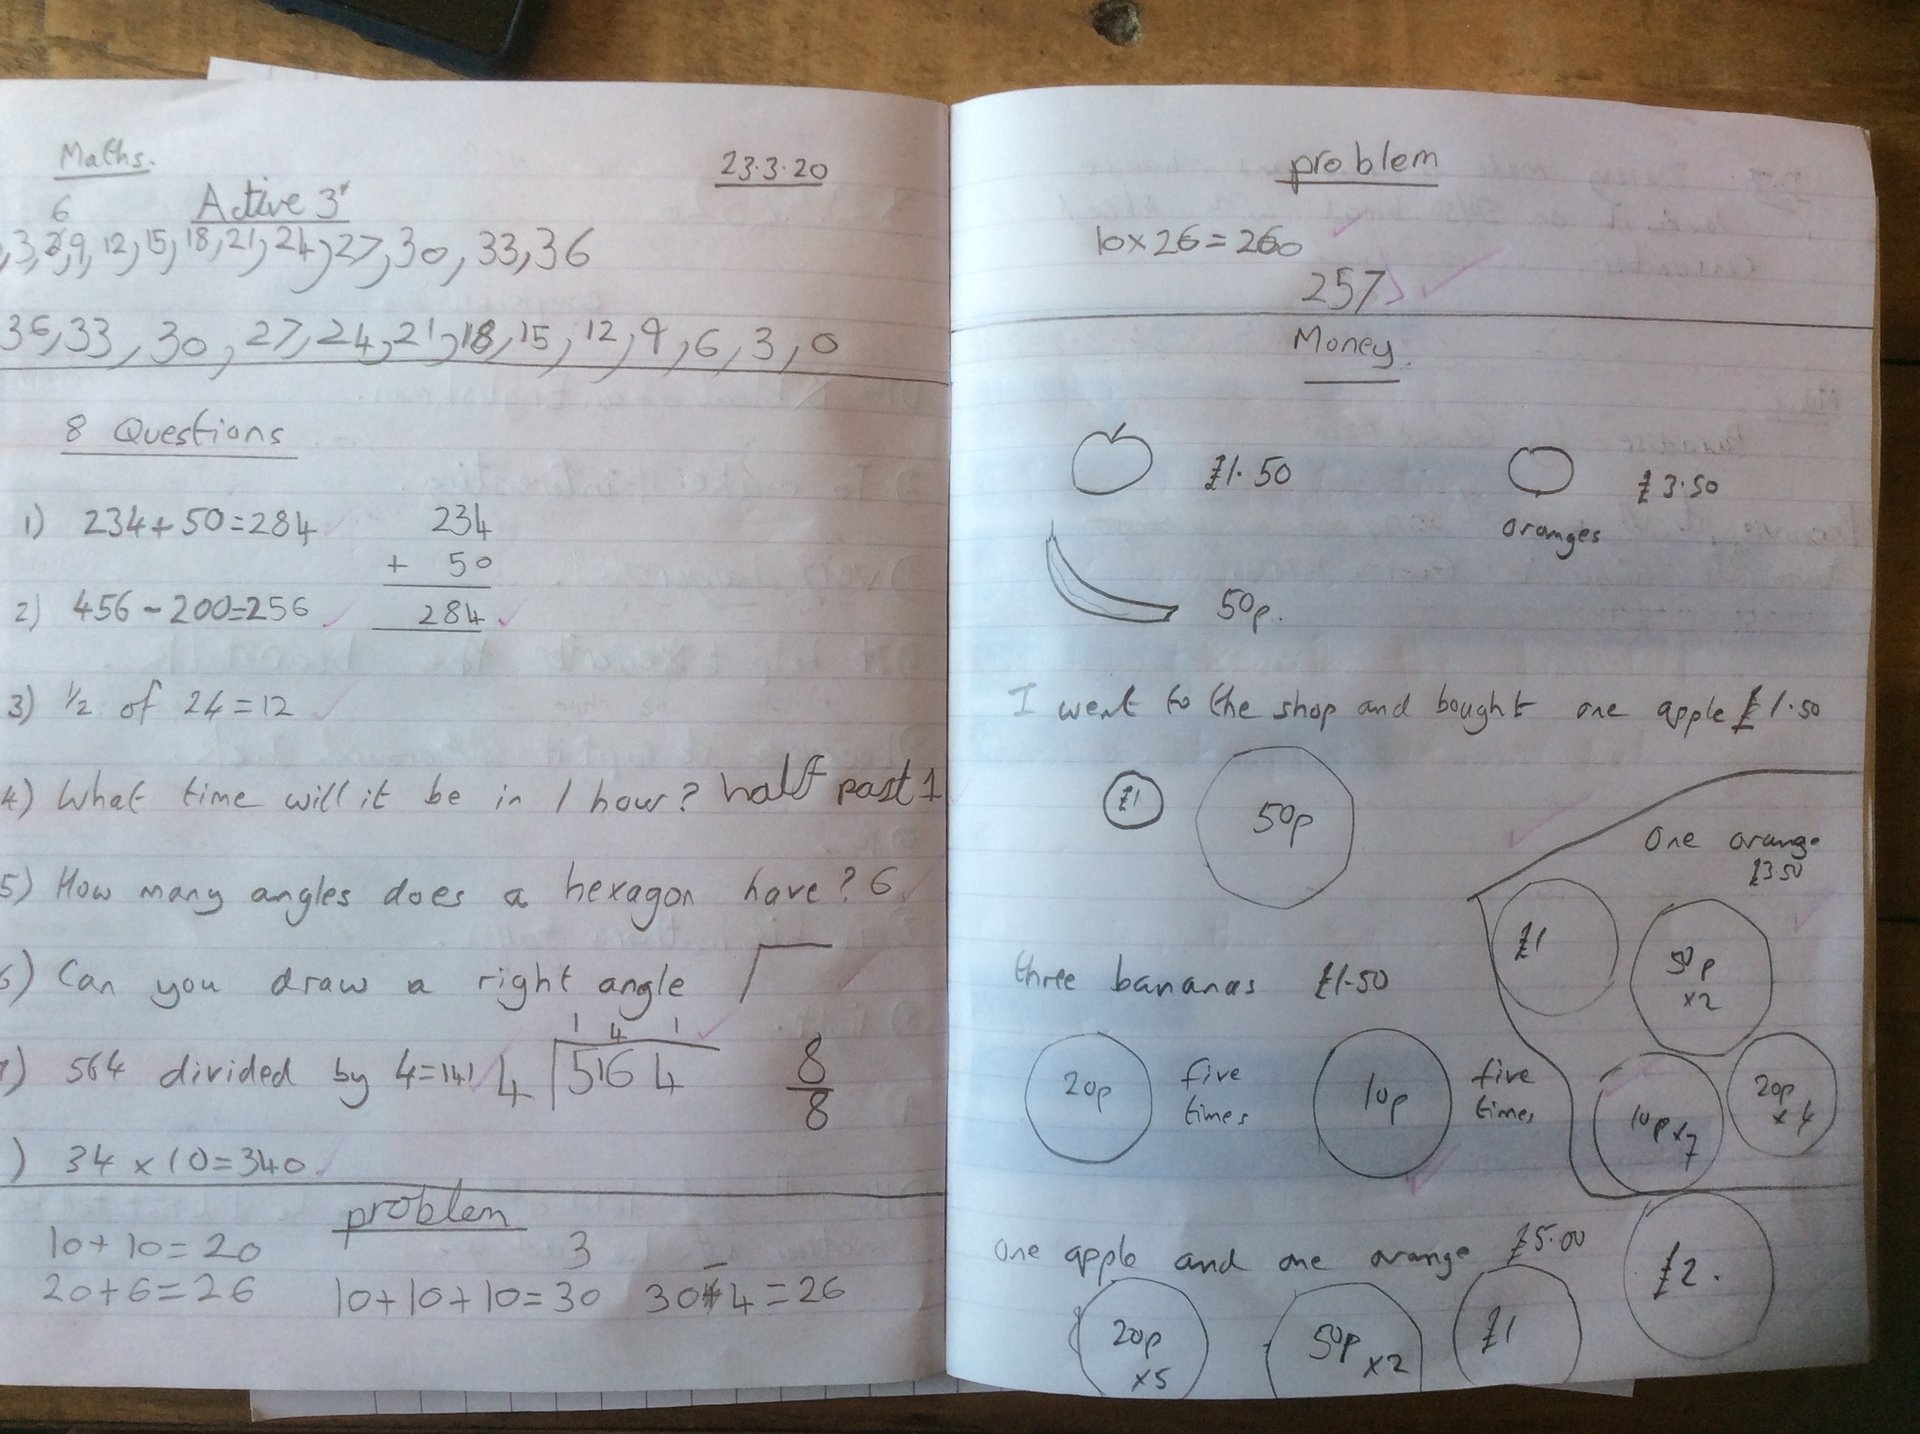 Maths.
23.3.20
Active 3'
6
,3,9,12,15,18,21,24,27,30,33,36
36,33,30,27,24,21,18,15,12,9,6,3,0
8 Questions
1) 234+50=284
234
+ 50
284
2) 456-200=256
3) 1/2 of 24=12
4) What time will it be in 1 hour? half past 1
5) How many angles does a hexagon have? 6
6) Can you draw a right angle
1 4 1
7) 564 divided by 4=141 4 5164
8
8
) 34 x 10=340
problem
10+10=20
20+6=26
3
10+10+10=30
30-4=26
problem
10x26=260
257
Money
£1.50
£3.50
oranges
50p.
I went to the shop and bought one apple £1.50
£1
50p
one orange
£3.50
£1
50p
x2
10px7
20p
x4
three bananas £1.50
20p
five
times
10p
five
times
one apple and one orange £5.00
20p
x5
50p x2
£1
£2.